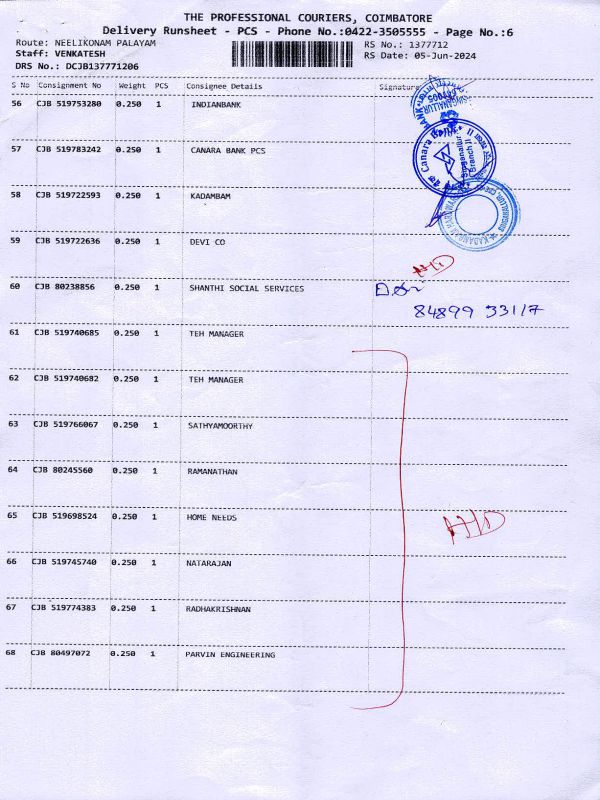 THE PROFESSIONAL COURIERS, COIMBATORE
Delivery Runsheet - PCS - Phone No.:0422-3505555 - Page No.:6
Route: NEELIKONAM PALAYAM
RS No.: 1377712
Staff: VENKATESH
RS Date: 05-Jun-2024
DRS No.: DCJB137771206
S No Consignment No Weight PCS Consignee Details Signature
56 CJB 519753280 0.250 1 INDIANBANK
57 CJB 519783242 0.250 1 CANARA BANK PCS
Canara Bank
Singanallur
Branch II
58 CJB 519722593 0.250 1 KADAMBAM
59 CJB 519722636 0.250 1 DEVI CO
60 CJB 80238856 0.250 1 SHANTHI SOCIAL SERVICES
84899 33117
61 CJB 519740685 0.250 1 TEH MANAGER
62 CJB 519740682 0.250 1 TEH MANAGER
63 CJB 519766067 0.250 1 SATHYAMOORTHY
64 CJB 80245560 0.250 1 RAMANATHAN
65 CJB 519698524 0.250 1 HOME NEEDS
66 CJB 519745740 0.250 1 NATARAJAN
67 CJB 519774383 0.250 1 RADHAKRISHNAN
68 CJB 80497072 0.250 1 PARVIN ENGINEERING